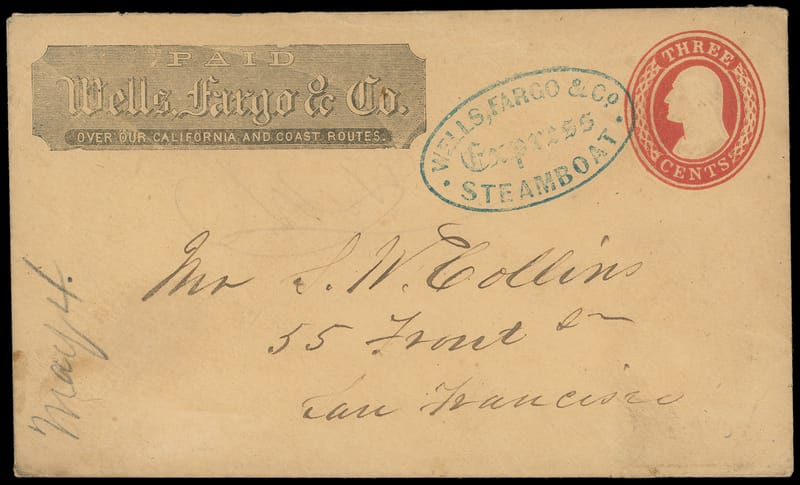 PAID
Wells, Fargo & Co.
OVER OUR CALIFORNIA AND COAST ROUTES.
WELLS, FARGO & Co
Express
STEAMBOAT
THREE
CENTS
Mr S. W. Collins
55 Front St
San Francisco
May 4.